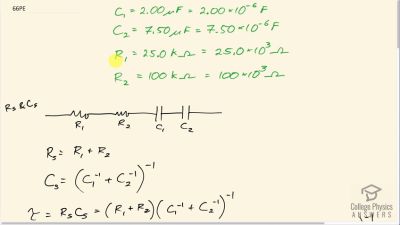 66PE
C₁ = 2.00 μF = 2.00*10⁻⁶ F
C₂ = 7.50 μF = 7.50*10⁻⁶ F
R₁ = 25.0 kΩ = 25.0*10³ Ω
R₂ = 100 kΩ = 100*10³ Ω
Rs & Cs
R₁ R₂ C₁ C₂
Rs = R₁ + R₂
Cs = (C₁⁻¹ + C₂⁻¹)⁻¹
τ = Rs Cs = (R₁ + R₂)(C₁⁻¹ + C₂⁻¹)⁻¹
College Physics
ANSWERS